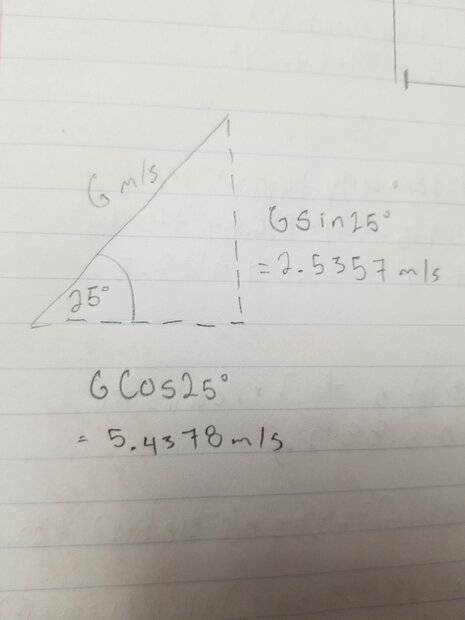 6 m/s
6 Sin25°
= 2.5357 m/s
25°
6 Cos25°
= 5.4378 m/s